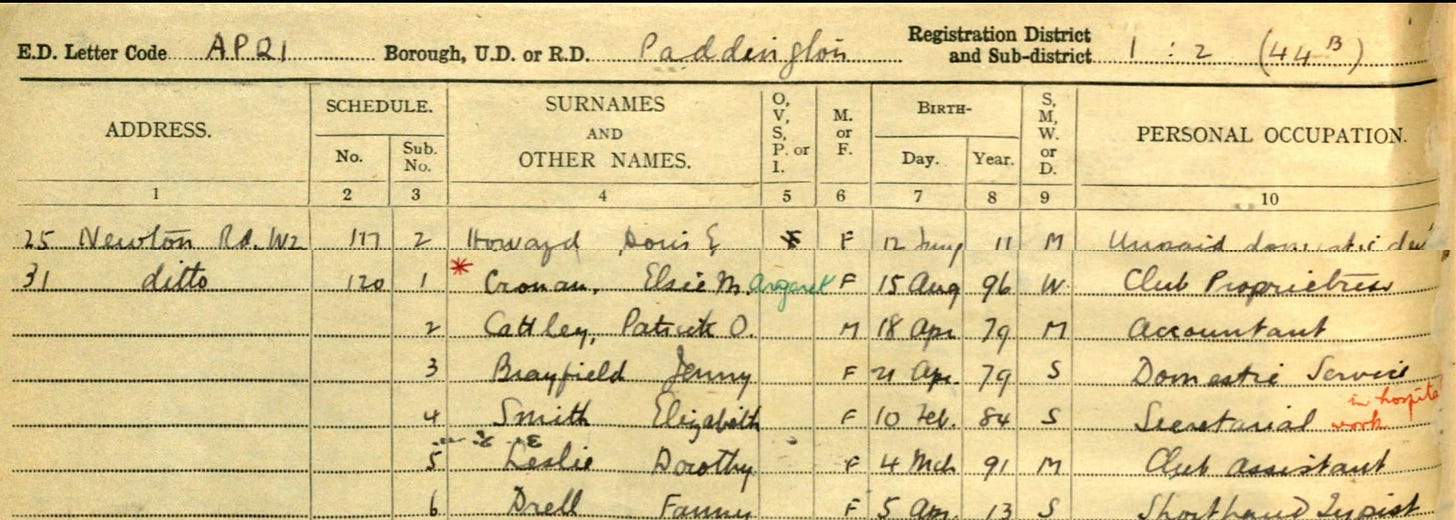 E.D. Letter Code APQ1 Borough, U.D. or R.D. Paddington Registration District and Sub-district 1 : 2 (44 B)
ADDRESS. SCHEDULE. SURNAMES AND OTHER NAMES. O, V, S, P. or I. M. or F. BIRTH- S, M, W. or D. PERSONAL OCCUPATION.
No. Sub. No. Day. Year.
1 2 3 4 5 6 7 8 9 10
25 Newton Rd. W2 117 2 Howard Doris E F 12 11 M Unpaid domestic
31 ditto 120 1 * Cronan, Elsie Margaret F 15 Aug 96 W. Club Proprietress
2 Cattley, Patrick O. M 18 Apr 79 M Accountant
3 Brayfield Jenny F 21 Apr. 79 S Domestic Service
4 Smith Elizabeth F 10 Feb. 84 S Secretarial work in hospital
5 Leslie Dorothy F 4 Mch 91 M Club assistant
6 Drell Fanny F 5 Apr 13 S Shorthand Typist